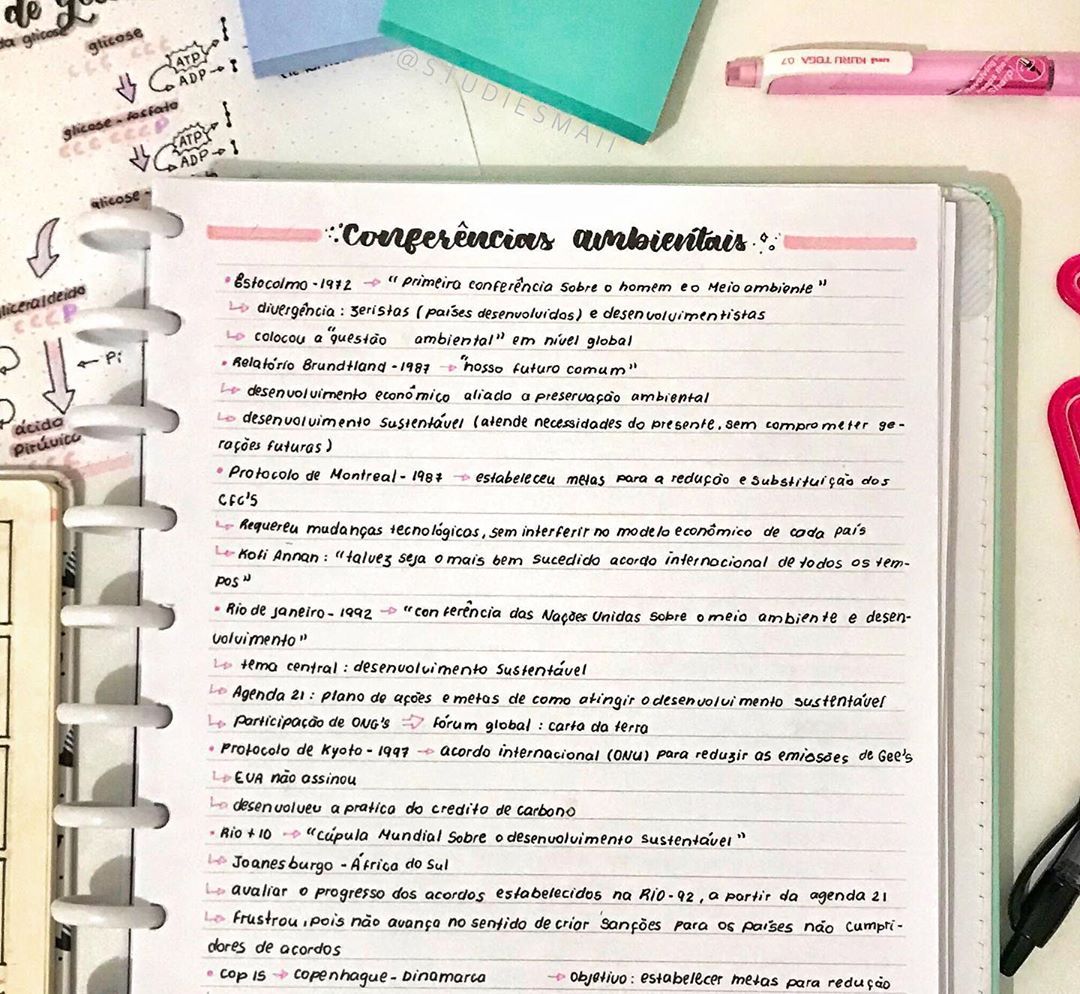 de
da glicose
glicose
ATP
ADP
glicose - fosfato
P
ATP
ADP
glicose -
gliceraldeído
P
Pi
ácido
Pirúvico
@STUDIESMAII
uni KURU TOGA 07
Conferências ambientais
• Estocolmo - 1972 → "primeira conferência sobre o homem e o Meio ambiente"
↳ divergência : zeristas (países desenvolvidos) e desenvolvimentistas
↳ colocou a "questão ambiental" em nível global
• Relatório Brundtland - 1987 → "nosso futuro comum"
↳ desenvolvimento econômico aliado a preservação ambiental
↳ desenvolvimento sustentável (atende necessidades do presente, sem comprometer ge-
rações futuras)
• Protocolo de Montreal - 1987 → estabeleceu metas para a redução e substituição dos
CFC'S
↳ Requereu mudanças tecnológicas, sem interferir no modelo econômico de cada país
↳ Kofi Annan : "talvez seja o mais bem sucedido acordo internacional de todos os tem-
pos"
• Rio de Janeiro - 1992 → "conferência das Nações Unidas sobre o meio ambiente e desen-
volvimento"
↳ tema central : desenvolvimento sustentável
↳ Agenda 21 : plano de ações e metas de como atingir o desenvolvimento sustentável
↳ participação de ONG's ⇨ Fórum global : carta da terra
• Protocolo de Kyoto - 1997 → acordo internacional (ONU) para reduzir as emissões de Gee's
↳ EUA não assinou
↳ desenvolveu a pratica do credito de carbono
• Rio + 10 → "Cúpula Mundial Sobre o desenvolvimento sustentável"
↳ Joanesburgo - África do Sul
↳ avaliar o progresso dos acordos estabelecidos na RIO-92, a partir da agenda 21
↳ Frustrou, pois não avança no sentido de criar sanções para os países não cumpri-
dores de acordos
• Cop 15 → Copenhague - Dinamarca → Objetivo : estabelecer metas para redução